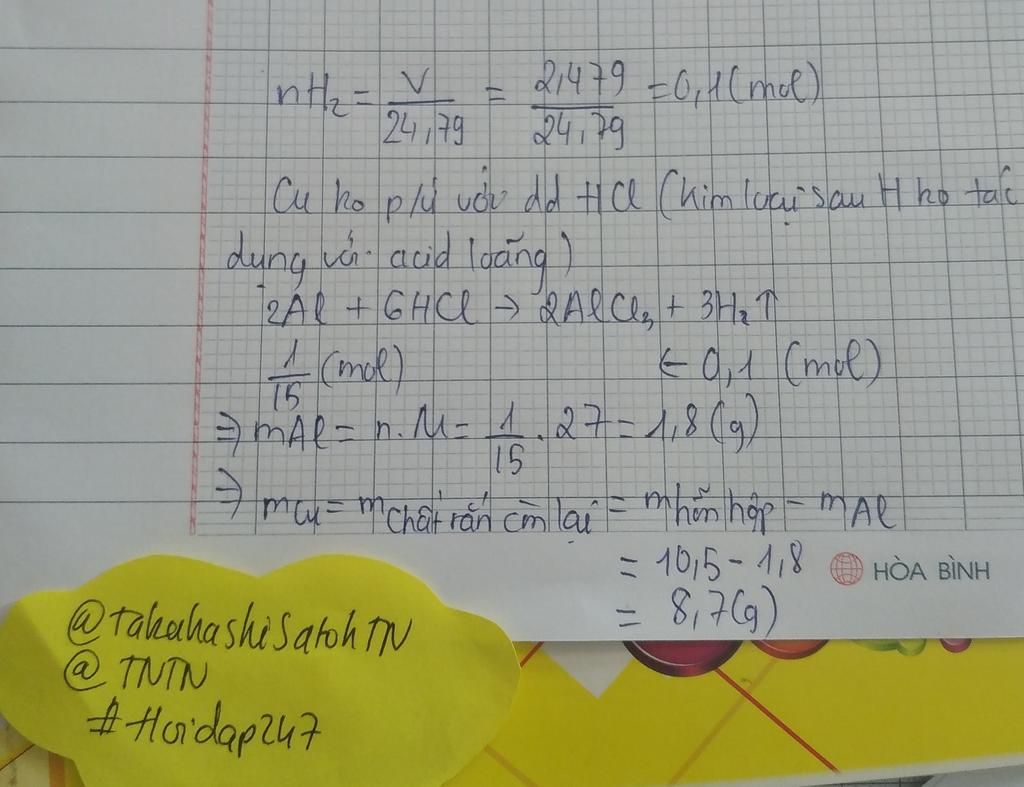 nH₂ = V/24,79 = 2,479/24,79 = 0,1 (mol)
Cu ko p/ứ với dd HCl (kim loại sau H ko tác
dụng với acid loãng)
2Al + 6HCl → 2AlCl₃ + 3H₂↑
1/15 (mol) ← 0,1 (mol)
⇒ mAl = n.M = 1/15 . 27 = 1,8 (g)
⇒ mCu = m chất rắn còn lại = m hỗn hợp - mAl
= 10,5 - 1,8
HÒA BÌNH
= 8,7 (g)
@takahashiSatohTN
@TNTN
#Hoidap247